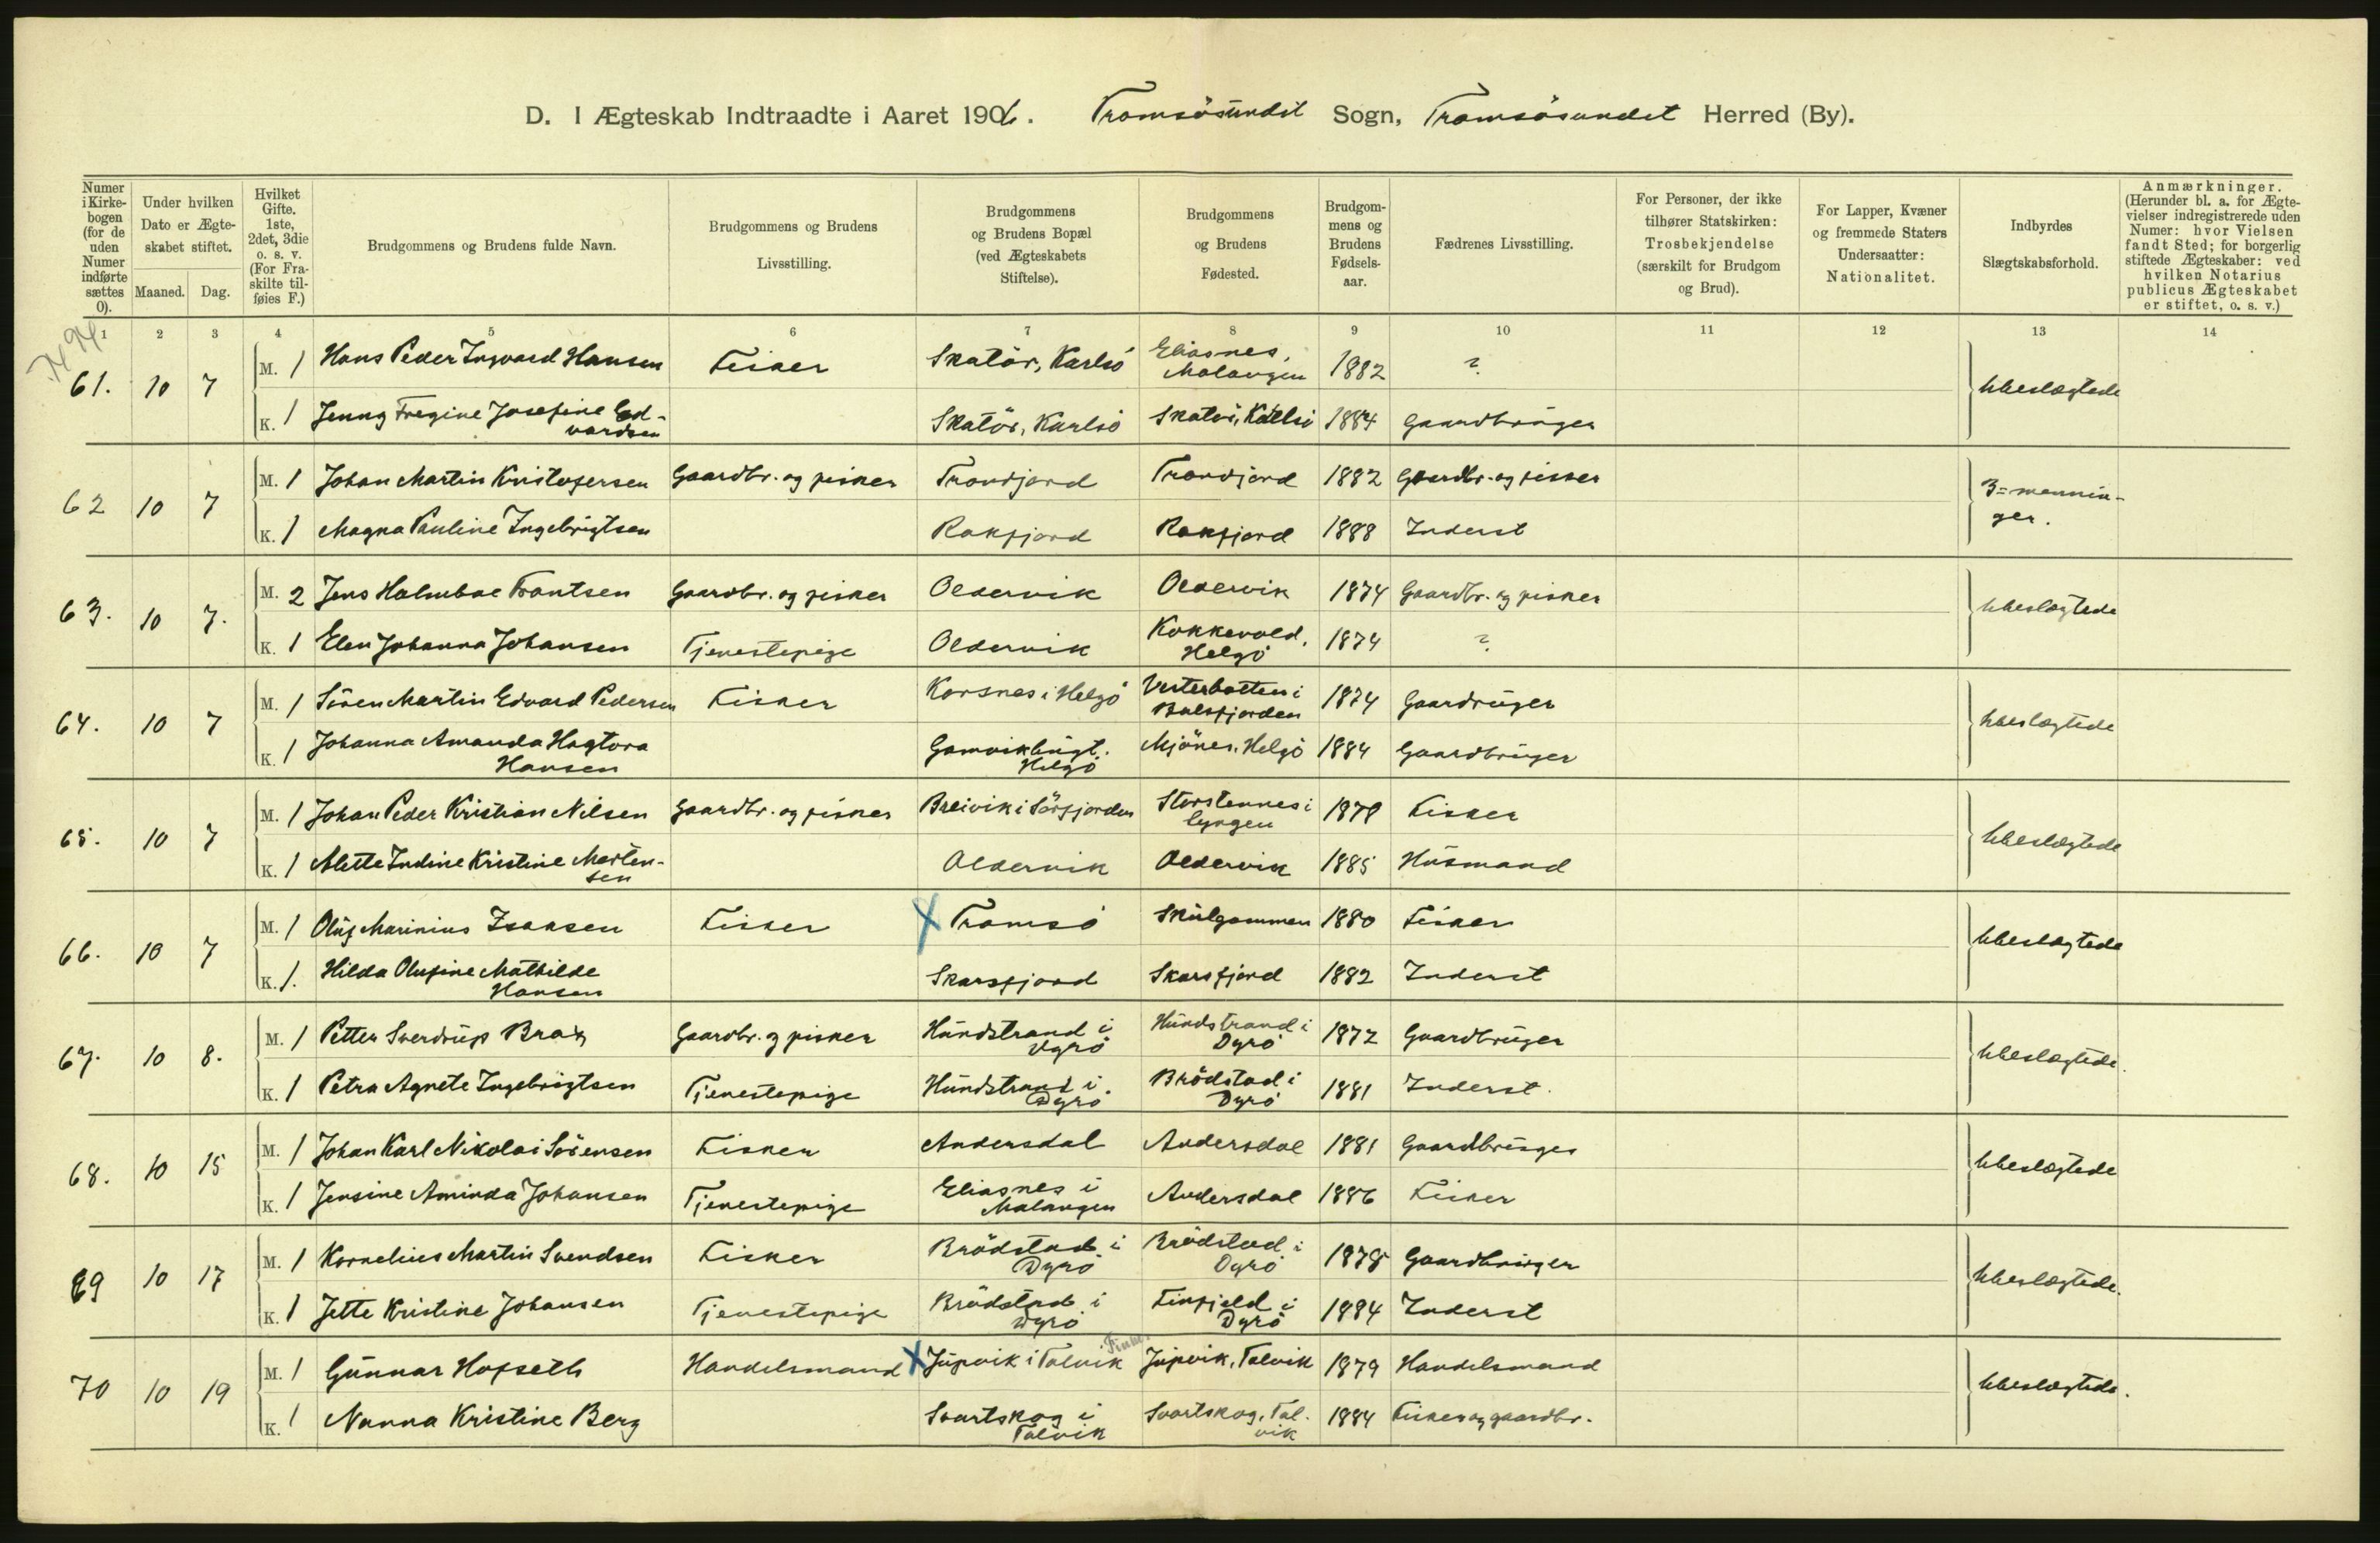 D. I Ægteskab Indtraadte i Aaret 1906. Tromsösundet Sogn, Tromsösundet Herred (By).
Numer i Kirkebogen (for de uden Numer indførte sættes 0).
Under hvilken Dato er Ægteskabet stiftet.
Maaned. Dag.
Hvilket Gifte. 1ste, 2det, 3die o. s. v. (For Fraskilte tilføies F.)
Brudgommens og Brudens fulde Navn.
Brudgommens og Brudens Livsstilling.
Brudgommens og Brudens Bopæl (ved Ægteskabets Stiftelse).
Brudgommens og Brudens Fødested.
Brudgommens og Brudens Fødselsaar.
Fædrenes Livsstilling.
For Personer, der ikke tilhører Statskirken: Trosbekjendelse (særskilt for Brudgom og Brud).
For Lapper, Kvæner og fremmede Staters Undersaatter: Nationalitet.
Indbyrdes Slægtskabsforhold.
Anmærkninger. (Herunder bl. a. for Ægtevielser indregistrerede uden Numer: hvor Vielsen fandt Sted; for borgerlig stiftede Ægteskaber: ved hvilken Notarius publicus Ægteskabet er stiftet, o. s. v.)
1 2 3 4 5 6 7 8 9 10 11 12 13 14
61. 10 7 M. 1 Hans Peder Ingvard Hansen Fisker Skatör, Karlsö Eliasnes, Malangen 1882 ? Ubeslægtede
K. 1 Jenny Fregine Josefine Edvardsen Skatör, Karlsö Skatör, Karlsö 1884 Gaardbrüger
62 10 7 M. 1 Johan Martin Kristofersen Gaardbr. og fisker Tromdjord Tromdjord 1882 Gaardbr. og fisker 3=menninger.
K. 1 Magna Pauline Ingebrigtsen Rakfjord Rakfjord 1888 Inderst
63. 10 7. M. 2 Jens Holmboe Frantsen Gaardbr. og fisker Oldervik Oldervik 1874 Gaardbr. og fisker Ubeslægtede
K. 1 Elen Johanna Johansen Tjenestepige Oldervik Kokkevold, Helgö 1874 ?
64. 10 7 M. 1 Sören Martin Edvard Pedersen Fisker Korsnes i Helgö Vesterbotten i Balsfjorden 1874 Gaardrüger Ubeslægtede
K. 1 Johanna Amanda Hagtora Hansen Gamvik Helgö Mjönes, Helgö 1884 Gaardbrüger
65. 10 7 M. 1 Johan Peder Kristian Nilsen Gaardbr. og fisker Breivik i Sörfjorden Storstennes i Lyngen 1878 Fisker Ubeslægtede
K. 1 Alette Indine Kristine Mortensen Oldervik Oldervik 1885 Hüsmand
66. 10 7 M. 1 Olüf Marinius Isaksen Fisker X Tromsö Skülgammen 1880 Fisker Ubeslægtede
K. 1. Hilda Olufine Mathilde Hansen Skarsfjord Skarsfjord 1882 Inderst
67. 10 8. M. 1 Petter Sverdrüp Brox Gaardbr. og fisker Hündstrand i Dyrö Hündstrand i Dyrö 1872 Gaardbrüger Ubeslægtede.
K. 1 Petra Agnete Ingebrigtsen Tjenestepige Hündstrand i Dyrö Brödstad i Dyrö 1881 Inderst.
68. 10 15 M. 1 Johan Karl Nikolai Sörensen Fisker Andersdal Andersdal 1881 Gaardbrüger Ubeslægtede
K. 1 Jensine Aminda Johansen Tjenestepige Eliasnes i Malangen Andersdal 1886 Fisker
69 10 17 M. 1 Kornelius Martin Svendsen Fisker Brödstad i Dyrö Brödstad i Dyrö 1878 Gaardbrüger Ubeslægtede.
K. 1 Jette Kristine Johansen Tjenestepige Brödstad i Dyrö Finfjeld i Dyrö 1884 Inderst
70 10 19 M. 1 Günnar Hofseth Handelsmand X Jüpvik i Talvik Jüpvik, Talvik 1879 Handelsmand Ubeslægtede.
K. 1 Nanna Kristine Berg Svartskog i Talvik Svartskog, Talvik 1884 Fisker og gaardbr.